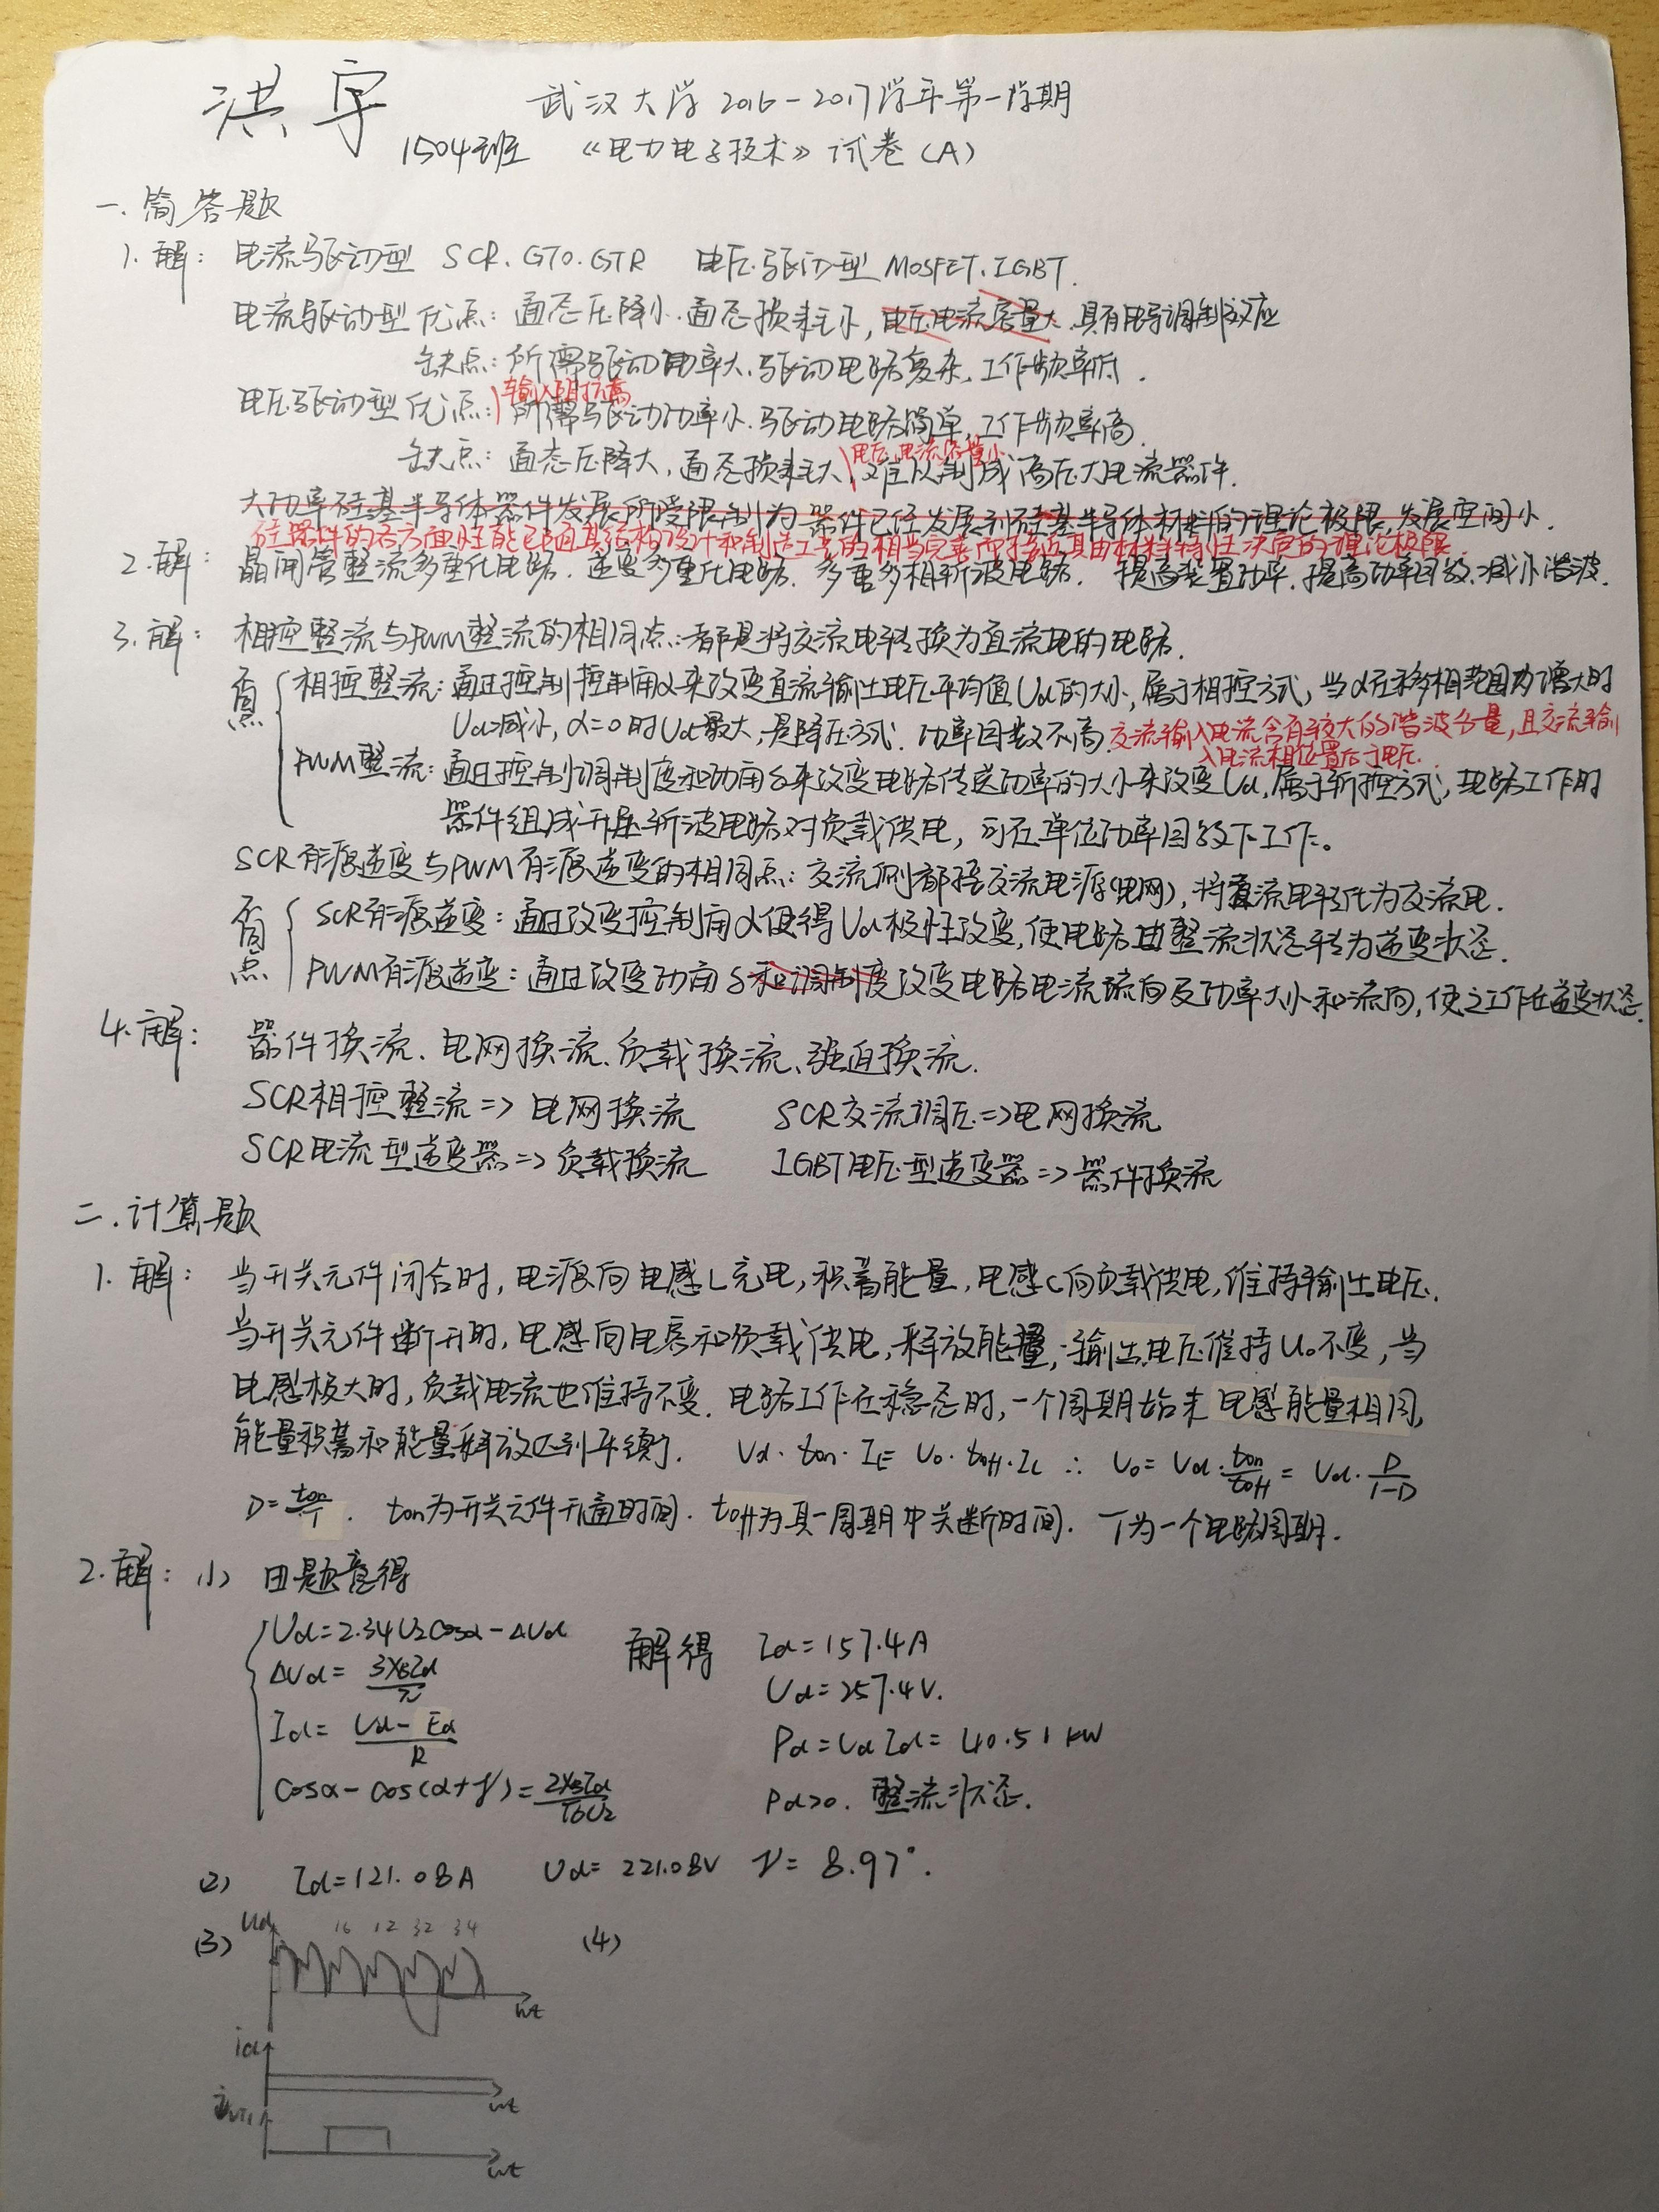 洪宇
武汉大学2016-2017学年第一学期
1504班 《电力电子技术》试卷(A)
一.简答题
1.解: 电流驱动型 SCR.GTO.GTR 电压驱动型 MOSFET.IGBT.
电流驱动型优点:通态压降小.通态损耗小,电压电流容量大.具有电导调制效应
缺点:所需驱动功率大.驱动电路复杂,工作频率低.
输入阻抗高
电压驱动型优点:所需驱动功率小.驱动电路简单,工作频率高.
电压、电流容量小
缺点:通态压降大,通态损耗大,难以制成高压大电流器件.
大功率硅基半导体器件发展所受限制为器件已经发展到硅基半导体材料的理论极限,发展空间小.
硅器件的各方面性能已随其结构设计和制造工艺的相当完善而接近其由材料特性决定的理论极限.
2.解: 晶闸管整流多重化电路.逆变多重化电路.多重多相斩波电路. 提高装置功率.提高功率因数.减小谐波.
3.解: 相控整流与PWM整流的相同点:都是将交流电转换为直流电的电路.
不同点
相控整流:通过控制控制角α来改变直流输出电压平均值Ud的大小,属于相控方式,当α在移相范围内增大时
Ud减小,α=0时Ud最大,是降压方式.功率因数不高.交流输入电流含有较大的谐波分量,且交流输
入电流相位滞后于电压.
PWM整流:通过控制调制度和功角δ来改变电路传送功率的大小来改变Ud,属于斩控方式,电路工作时
器件组成升压斩波电路对负载供电,可在单位功率因数下工作。
SCR有源逆变与PWM有源逆变的相同点:交流侧都接交流电源(电网),将直流电转化为交流电.
不同点
SCR有源逆变:通过改变控制角α使得Ud极性改变,使电路由整流状态转为逆变状态.
PWM有源逆变:通过改变功角δ和调制度改变电路电流流向及功率大小和流向,使之工作在逆变状态.
4.解: 器件换流、电网换流、负载换流、强迫换流.
SCR相控整流=>电网换流 SCR交流调压=>电网换流
SCR电流型逆变器=>负载换流 IGBT电压型逆变器=>器件换流
二.计算题
1.解: 当开关元件闭合时,电源向电感L充电,积蓄能量,电感C向负载供电,维持输出电压.
当开关元件断开时,电感向电容和负载供电,释放能量,输出电压维持U₀不变,当
电感极大时,负载电流也维持不变.电路工作在稳态时,一个周期始末电感能量相同,
能量积蓄和能量释放达到平衡. Ud·ton·IL=U₀·toff·IL ∴ U₀=Ud·ton/toff=Ud·D/1-D
D=ton/T. ton为开关元件开通时间.toff为其一周期中关断时间.T为一个电路周期.
2.解: (1) 由题意得
Ud=2.34U₂cosα-ΔUd 解得 Id=157.4A
ΔUd=3XBId/π Ud=257.4V.
Id=Ud-Ed/R Pd=UdId=40.51kW
cosα-cos(α+γ)=2XBId/√6U₂ Pd>0.整流状态.
(2) Id=121.08A Ud=221.08V γ=8.97°.
(3) Ud 16 12 32 34 (4)
ωt
id
ωt
iVT1
ωt